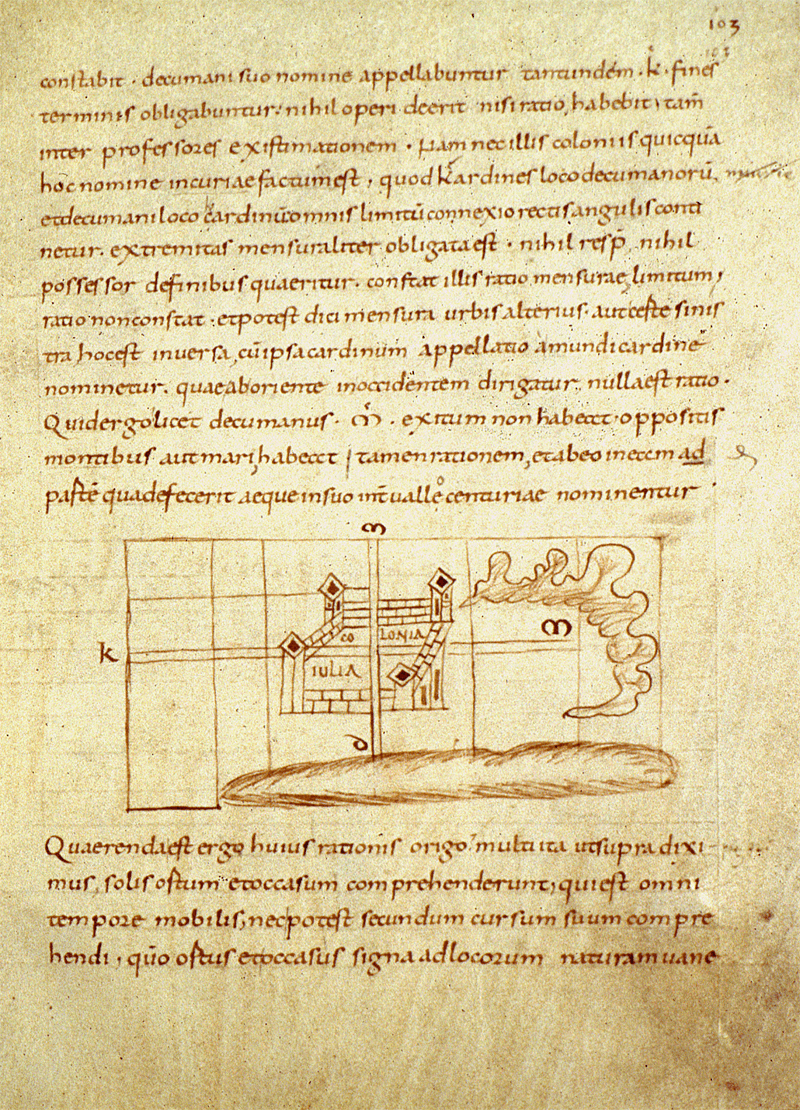 103
constabit · decumani suo nomine appellabuntur tantundem · k · fines
terminis obligabuntur nihil operi deerit nisi ratio, habebit tam̄
inter professores existimationem · Nam nec illis coloniis quicquā
hoc nomine incuriae factum est, quod Kardines loco decumanorū,
et decumani loco cardinū omnis limitū connexio rectis angulis conti
netur. extremitas mensuraliter obligata est · nihil resp̄ nihil
possessor de finibus quaeritur. constat illis ratio mensurae, limitum,
ratio non constat · et potest dici mensura urbis alterius · aut certe sinis
tra, hoc est inversa, cū ipsa cardinum appellatio a mundi cardine
nominetur. quae ab oriente in occidentem dirigatur, nulla est ratio.
Quid ergo licet decumanus · M̄ · exitum non habeat · oppositis
montibus aut mari, habeat tamen rationem, et ab eo in eam ad
partē qua defecerit aeque in suo intuallo centuriae nominentur
M
COLONIA
M
K
IULIA
D
Quaerenda est ergo huius rationis origo multi ita ut supra dixi
mus, solis ortum et occasum comprehenderunt, qui est omni
tempore mobilis, nec potest secundum cursum suum compre
hendi, quō ortus et occasus signa ad locorum naturam varie